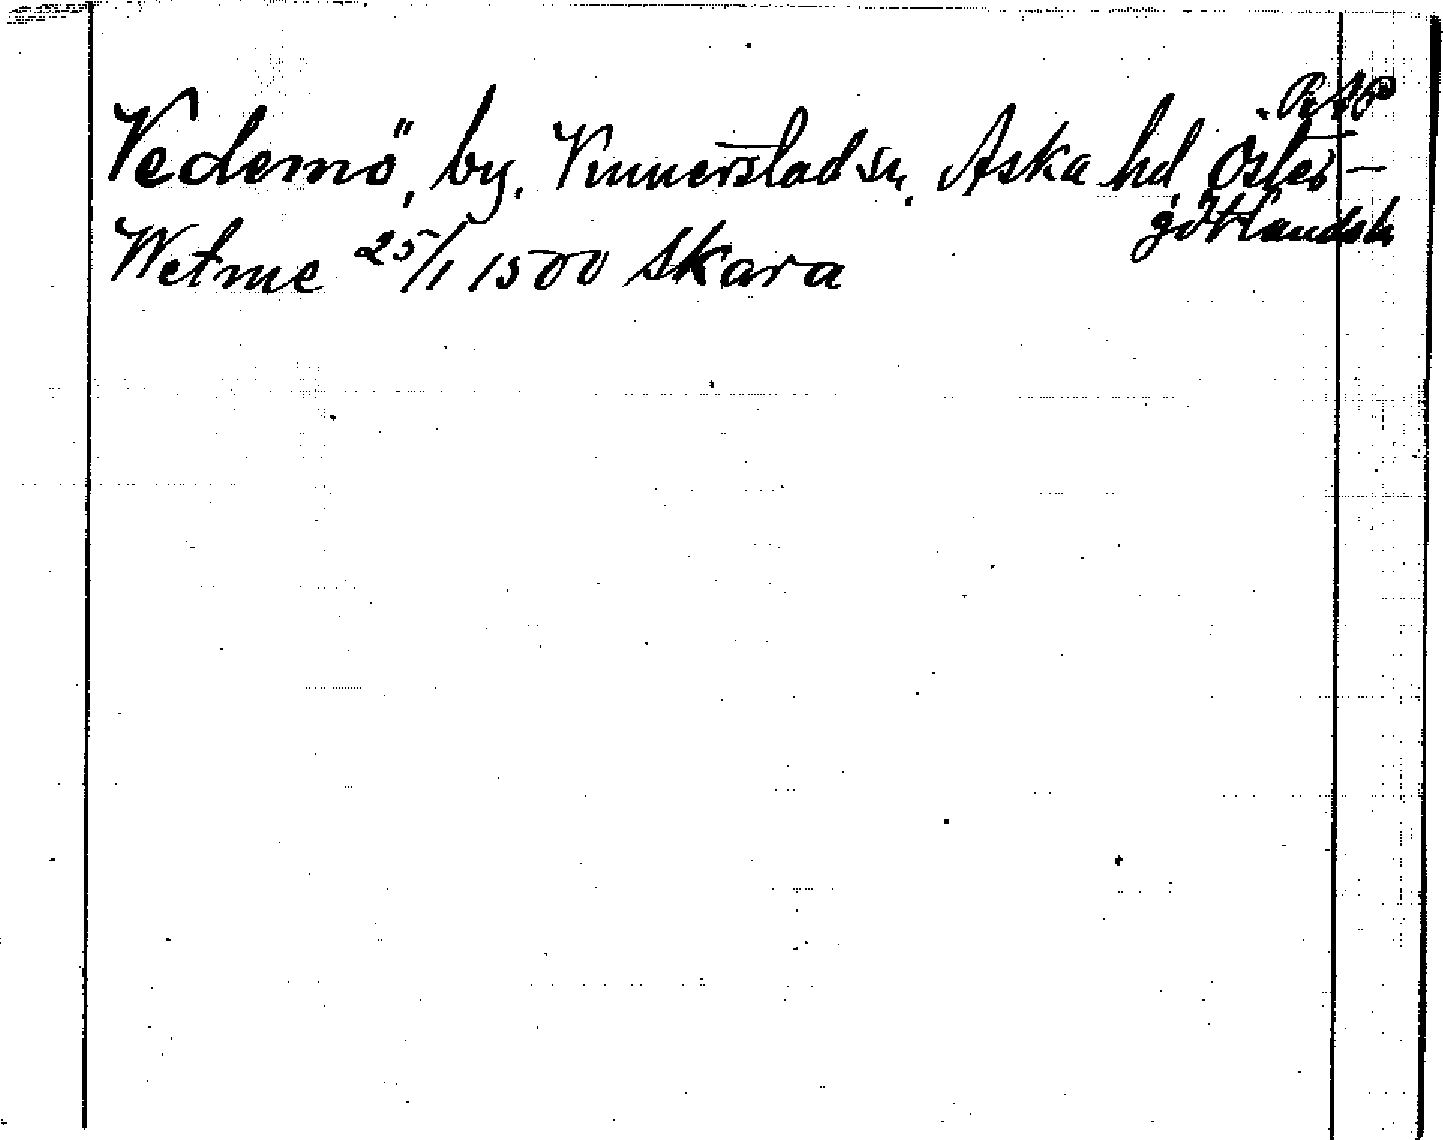 RAP
Vedemö, by, Vinnerstad sn, Aska hd, Öster-
götlands l.
Wetme 25/1 1500 Skara